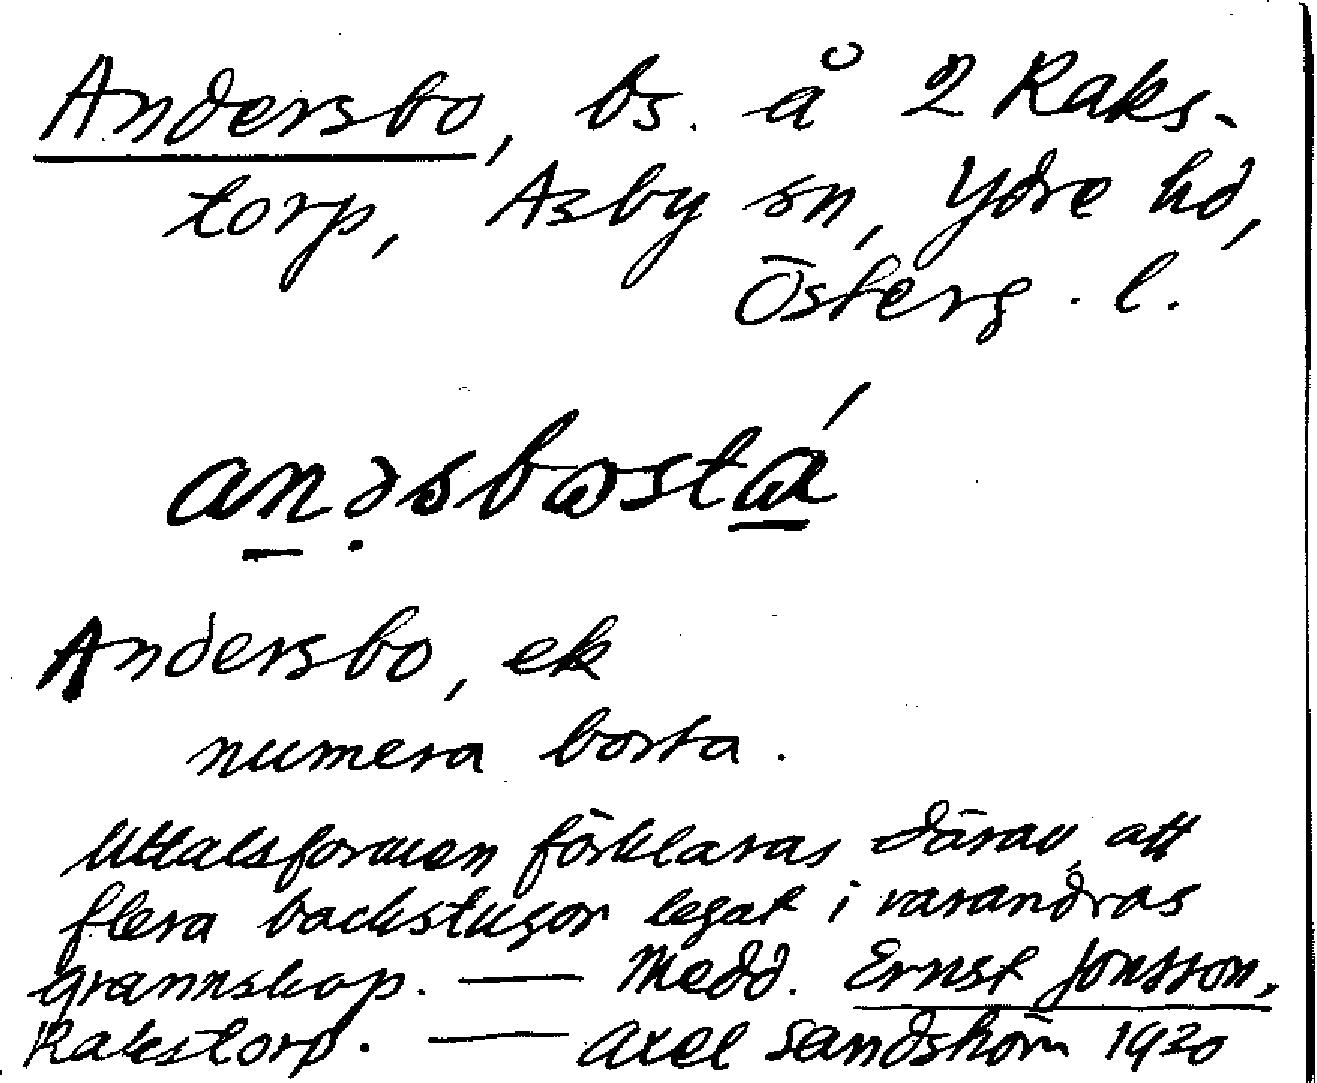 Andersbo, bs. å 2 Raks-
torp, Asby sn, Ydre hd,
Österg. l.
Andersbo, ek
numera borta.
Uttalsformen förklaras därav, att
flera backstugor legat i varandras
grannskap. — Medd. Ernst Jonsson,
Rakstorp. — Axel Sandström 1920